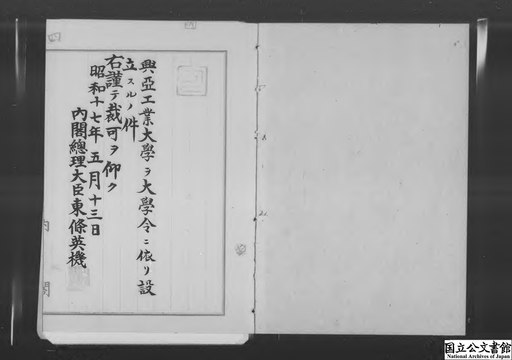 興亞工業大學ヲ大學令ニ依リ設
立スルノ件
右謹テ裁可ヲ仰ク
昭和十七年五月十三日
內閣總理大臣東條英機
內閣
国立公文書館
National Archives of Japan